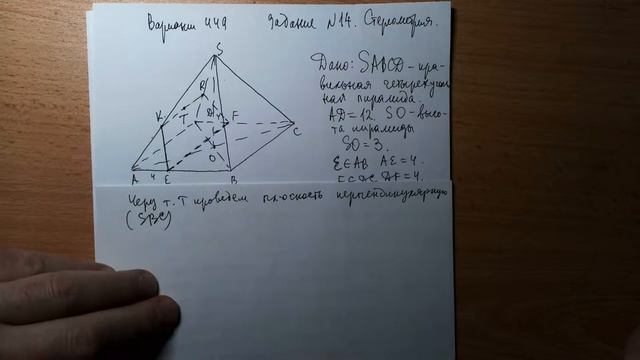 Вариант 449 Задание №14. Стереометрия.
S
K
R
T
D
F
C
O
A
4
E
B
Дано: SABCD - пра-
вильная четырехуголь
ная пирамида.
AD=12. SO - высо-
та пирамиды
SO = 3.
E∈AB AE=4.
AF=4.
Через т. T проведем плоскость перпендикулярную
(SBC)